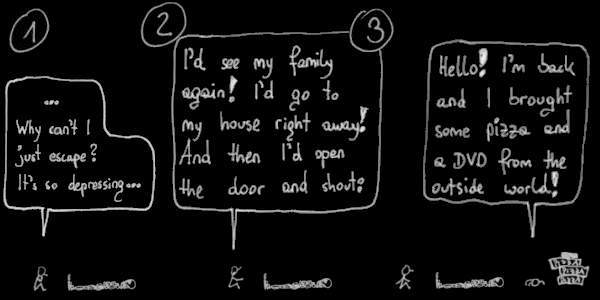 1
...
Why can't I
just escape?
It's so depressing...
2
I'd see my family
again! I'd go to
my house right away!
And then I'd open
the door and shout:
3
Hello! I'm back
and I brought
some pizza and
a DVD from the
outside world!
PIZZA
PIZZA
PIZZA